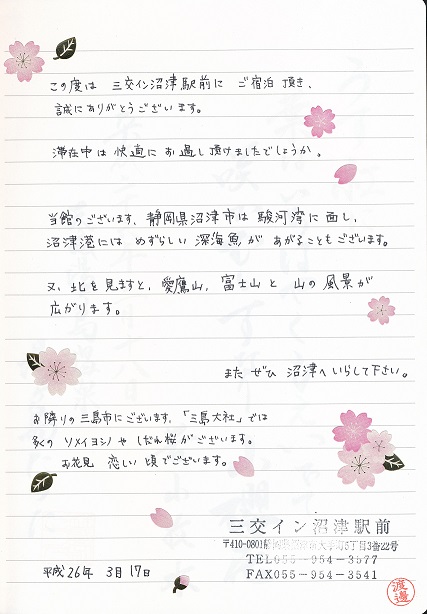 この度は 三交イン沼津駅前に ご宿泊 頂き、
誠にありがとうございます。
滞在中は 快適に お過し頂けましたでしょうか。
当館のございます、静岡県沼津市は 駿河湾に 面し、
沼津港には めずらしい 深海魚が あがることもございます。
又、北を見ますと、愛鷹山、富士山と 山の風景が
広がります。
また ぜひ 沼津へ いらして下さい。
お隣りの三島市にございます、「三島大社」では
多くの ソメイヨシノや しだれ桜がございます。
お花見 恋しい 頃でございます。
三交イン沼津駅前
〒410-0801 大手町5丁目3番22号
TEL055-954-3577
FAX055-954-3541
平成26年 3月17日
渡邉